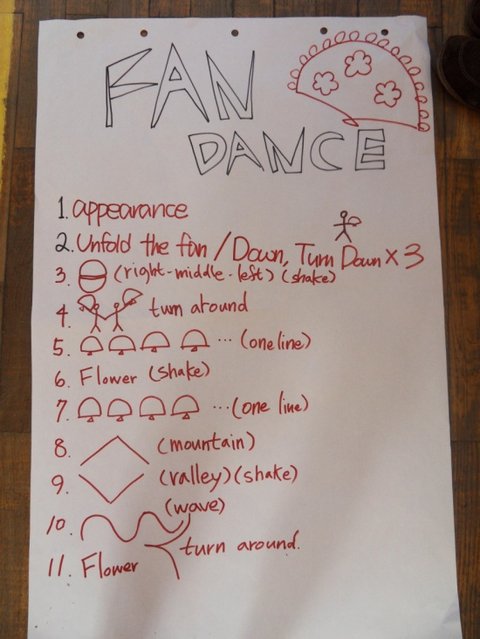 FAN
DANCE
1. appearance
2. Unfold the fan / Down, Turn Down x 3
3. (right-middle-left) (shake)
4. turn around
5. ... (one line)
6. Flower (shake)
7. ... (one line)
8. (mountain)
9. (ralley) (shake)
10. (wave)
11. Flower turn around.